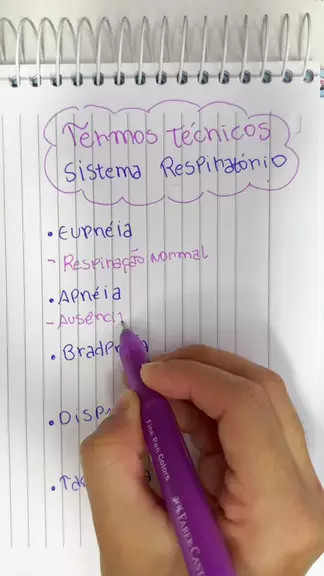 Termos Técnicos
Sistema Respiratório
• Eupnéia
- Respiração normal
• Apnéia
- Ausênci
Fine Pen Colors
FABER CAST